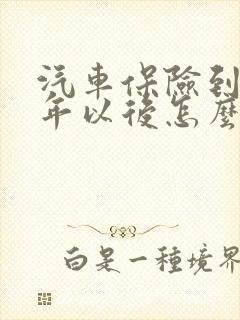 汽車保險到
年以後怎麼
白是一種境界